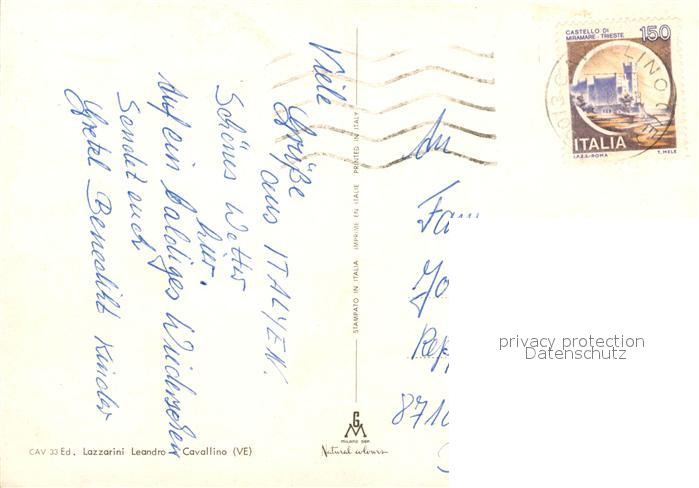 Viele Grüße
aus ITALIEN.
Schönes Wetter
hier.
Auf ein baldiges Wiedersehen
Sendet euch
Gretel Benedikt Kinder
STAMPATO IN ITALIA IMPRIME EN ITALIE PRINTED IN ITALY
CASTELLO DI
MIRAMARE - TRIESTE
150
ITALIA
I.P.Z.S.-ROMA T. MELE
LINO (VE)
An
Fam
Jo
Rep
8710
privacy protection
Datenschutz
GM
MILANO
CAV 33 Ed. Lazzarini Leandro - Cavallino (VE)
Natural colours